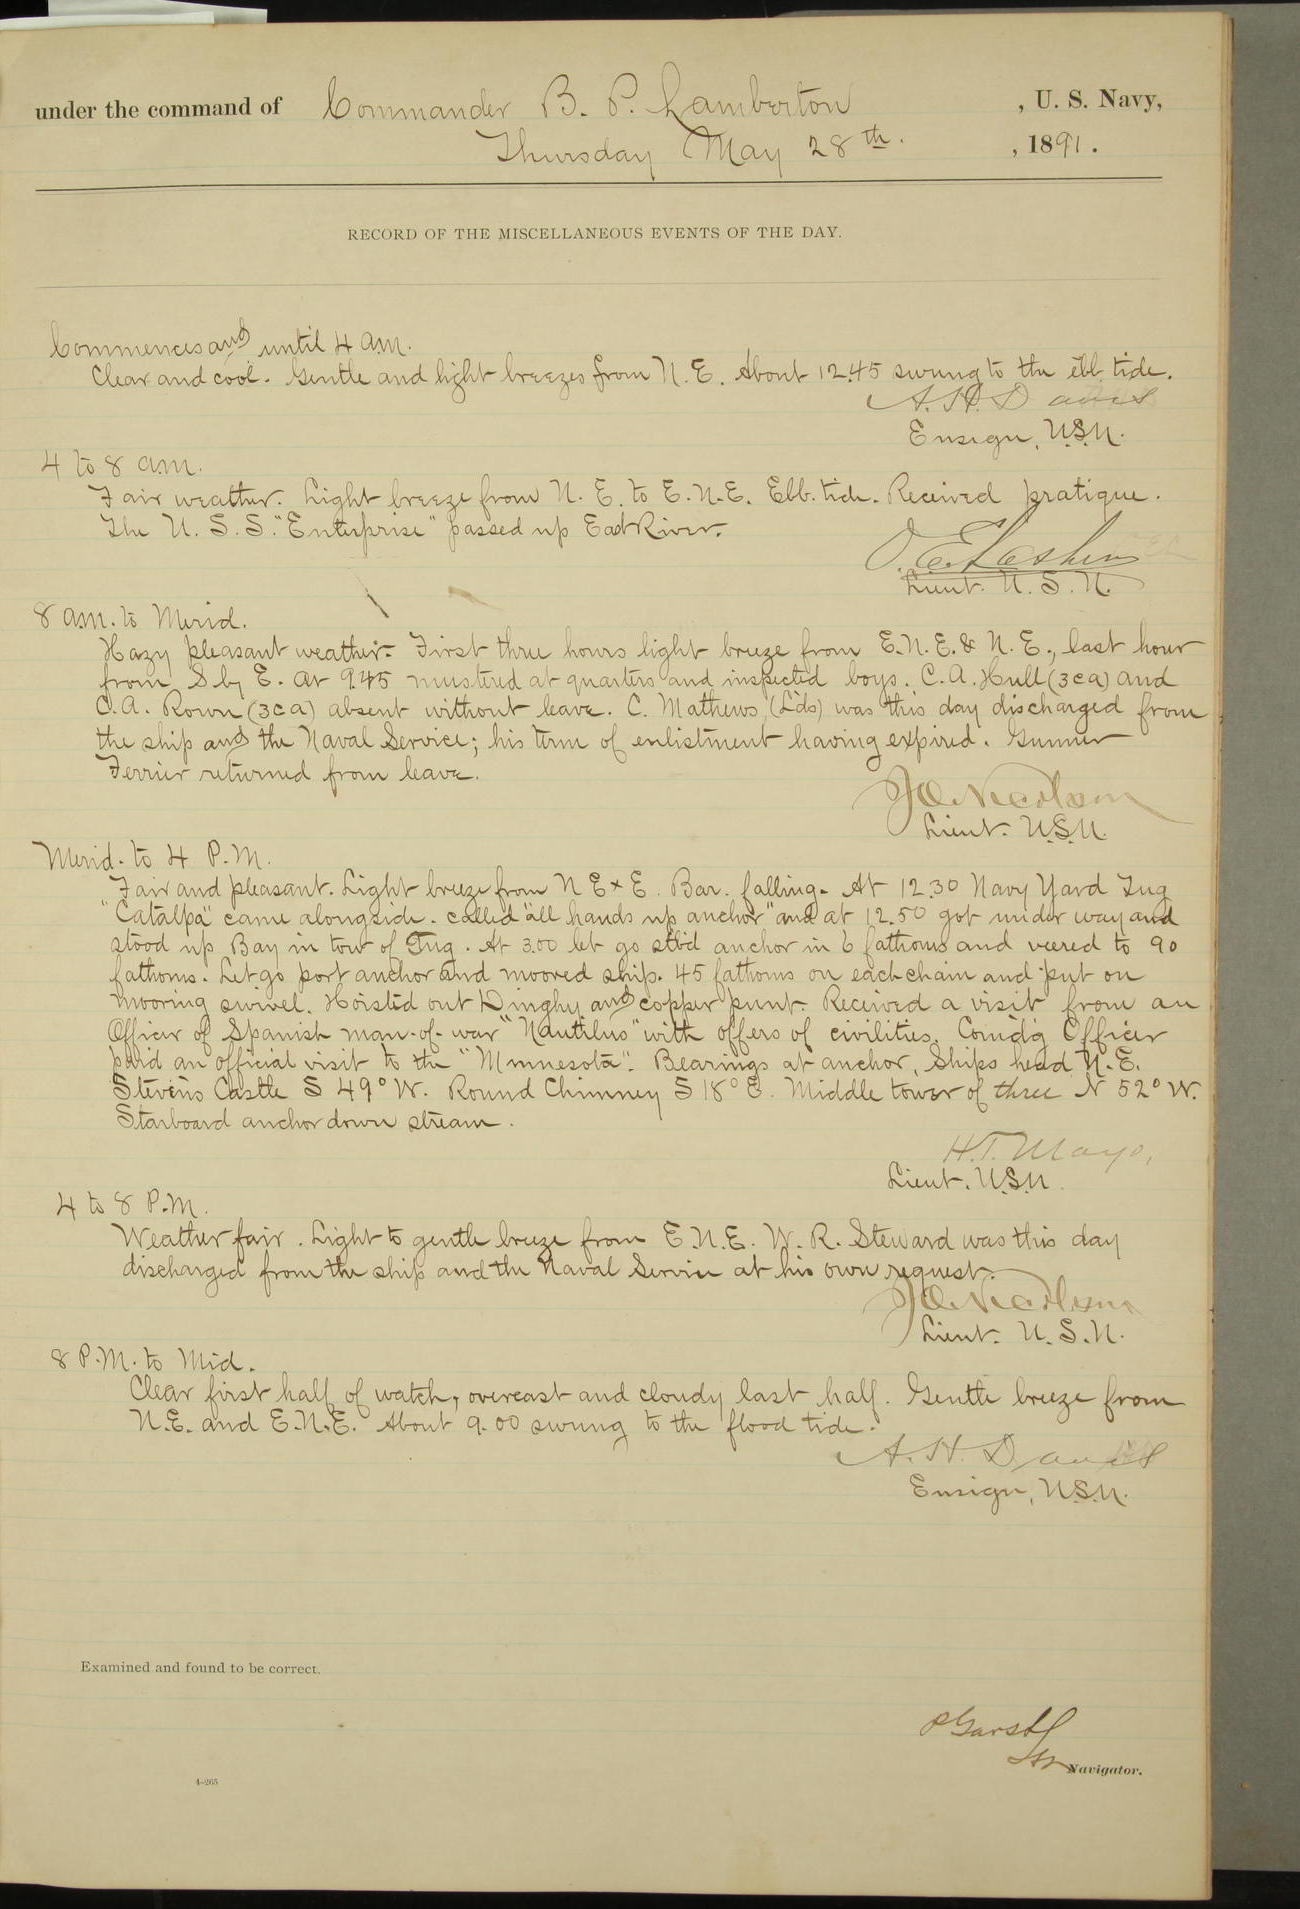 under the command of Commander B. P. Lamberton , U. S. Navy,
Thursday May 28th. , 1891.
RECORD OF THE MISCELLANEOUS EVENTS OF THE DAY.
Commences and until 4 a.m.
Clear and cool. Gentle and light breezes from N. E. About 12.45 swung to the ebb tide.
A. H. Davis
Ensign, U.S.N.
4 to 8 a.m.
Fair weather. Light breeze from N. E. to E.N.E. Ebb. tide. Received pratique.
The U. S. S. "Enterprise" passed up East River.
Lieut. U. S. N.
8 a.m. to Merid.
Hazy pleasant weather. First three hours light breeze from E.N.E. & N. E., last hour
from S by E. At 9.45 mustered at quarters and inspected boys. C. A. Hull (3ca) and
C. A. Rown (3ca) absent without leave. C. Mathews (Lds) was this day discharged from
the ship and the Naval Service; his term of enlistment having expired. Gunner
Ferrier returned from leave.
Lieut. U.S.N.
Merid. to 4 P.M.
Fair and pleasant. Light breeze from N E x E. Bar. falling. At 12.30 Navy Yard Tug
"Catalpa" came alongside. called "all hands up anchor" and at 12.50 got under way and
stood up Bay in tow of Tug. At 3.00 let go stb'd anchor in 6 fathoms and veered to 90
fathoms. Let go port anchor and moored ship. 45 fathoms on each chain and put on
mooring swivel. Hoisted out Dinghy and copper punt. Received a visit from an
Officer of Spanish man-of-war "Nautilus" with offers of civilities. Comd'g Officer
paid an official visit to the "Minnesota". Bearings at anchor, Ships head N.E.
Steven's Castle S 49° W. Round Chimney S 18° E. Middle tower of three N 52° W.
Starboard anchor down stream.
H. T. Mayo,
Lieut. U.S.N.
4 to 8 P.M.
Weather fair. Light to gentle breeze from E.N.E. W. R. Steward was this day
discharged from the ship and the Naval Service at his own request.
Lieut. U. S. N.
8 P.M. to Mid.
Clear first half of watch, overcast and cloudy last half. Gentle breeze from
N.E. and E.N.E. About 9.00 swung to the flood tide.
A. H. Davis
Ensign, U.S.N.
Examined and found to be correct.
P Garst
Navigator.
4-265